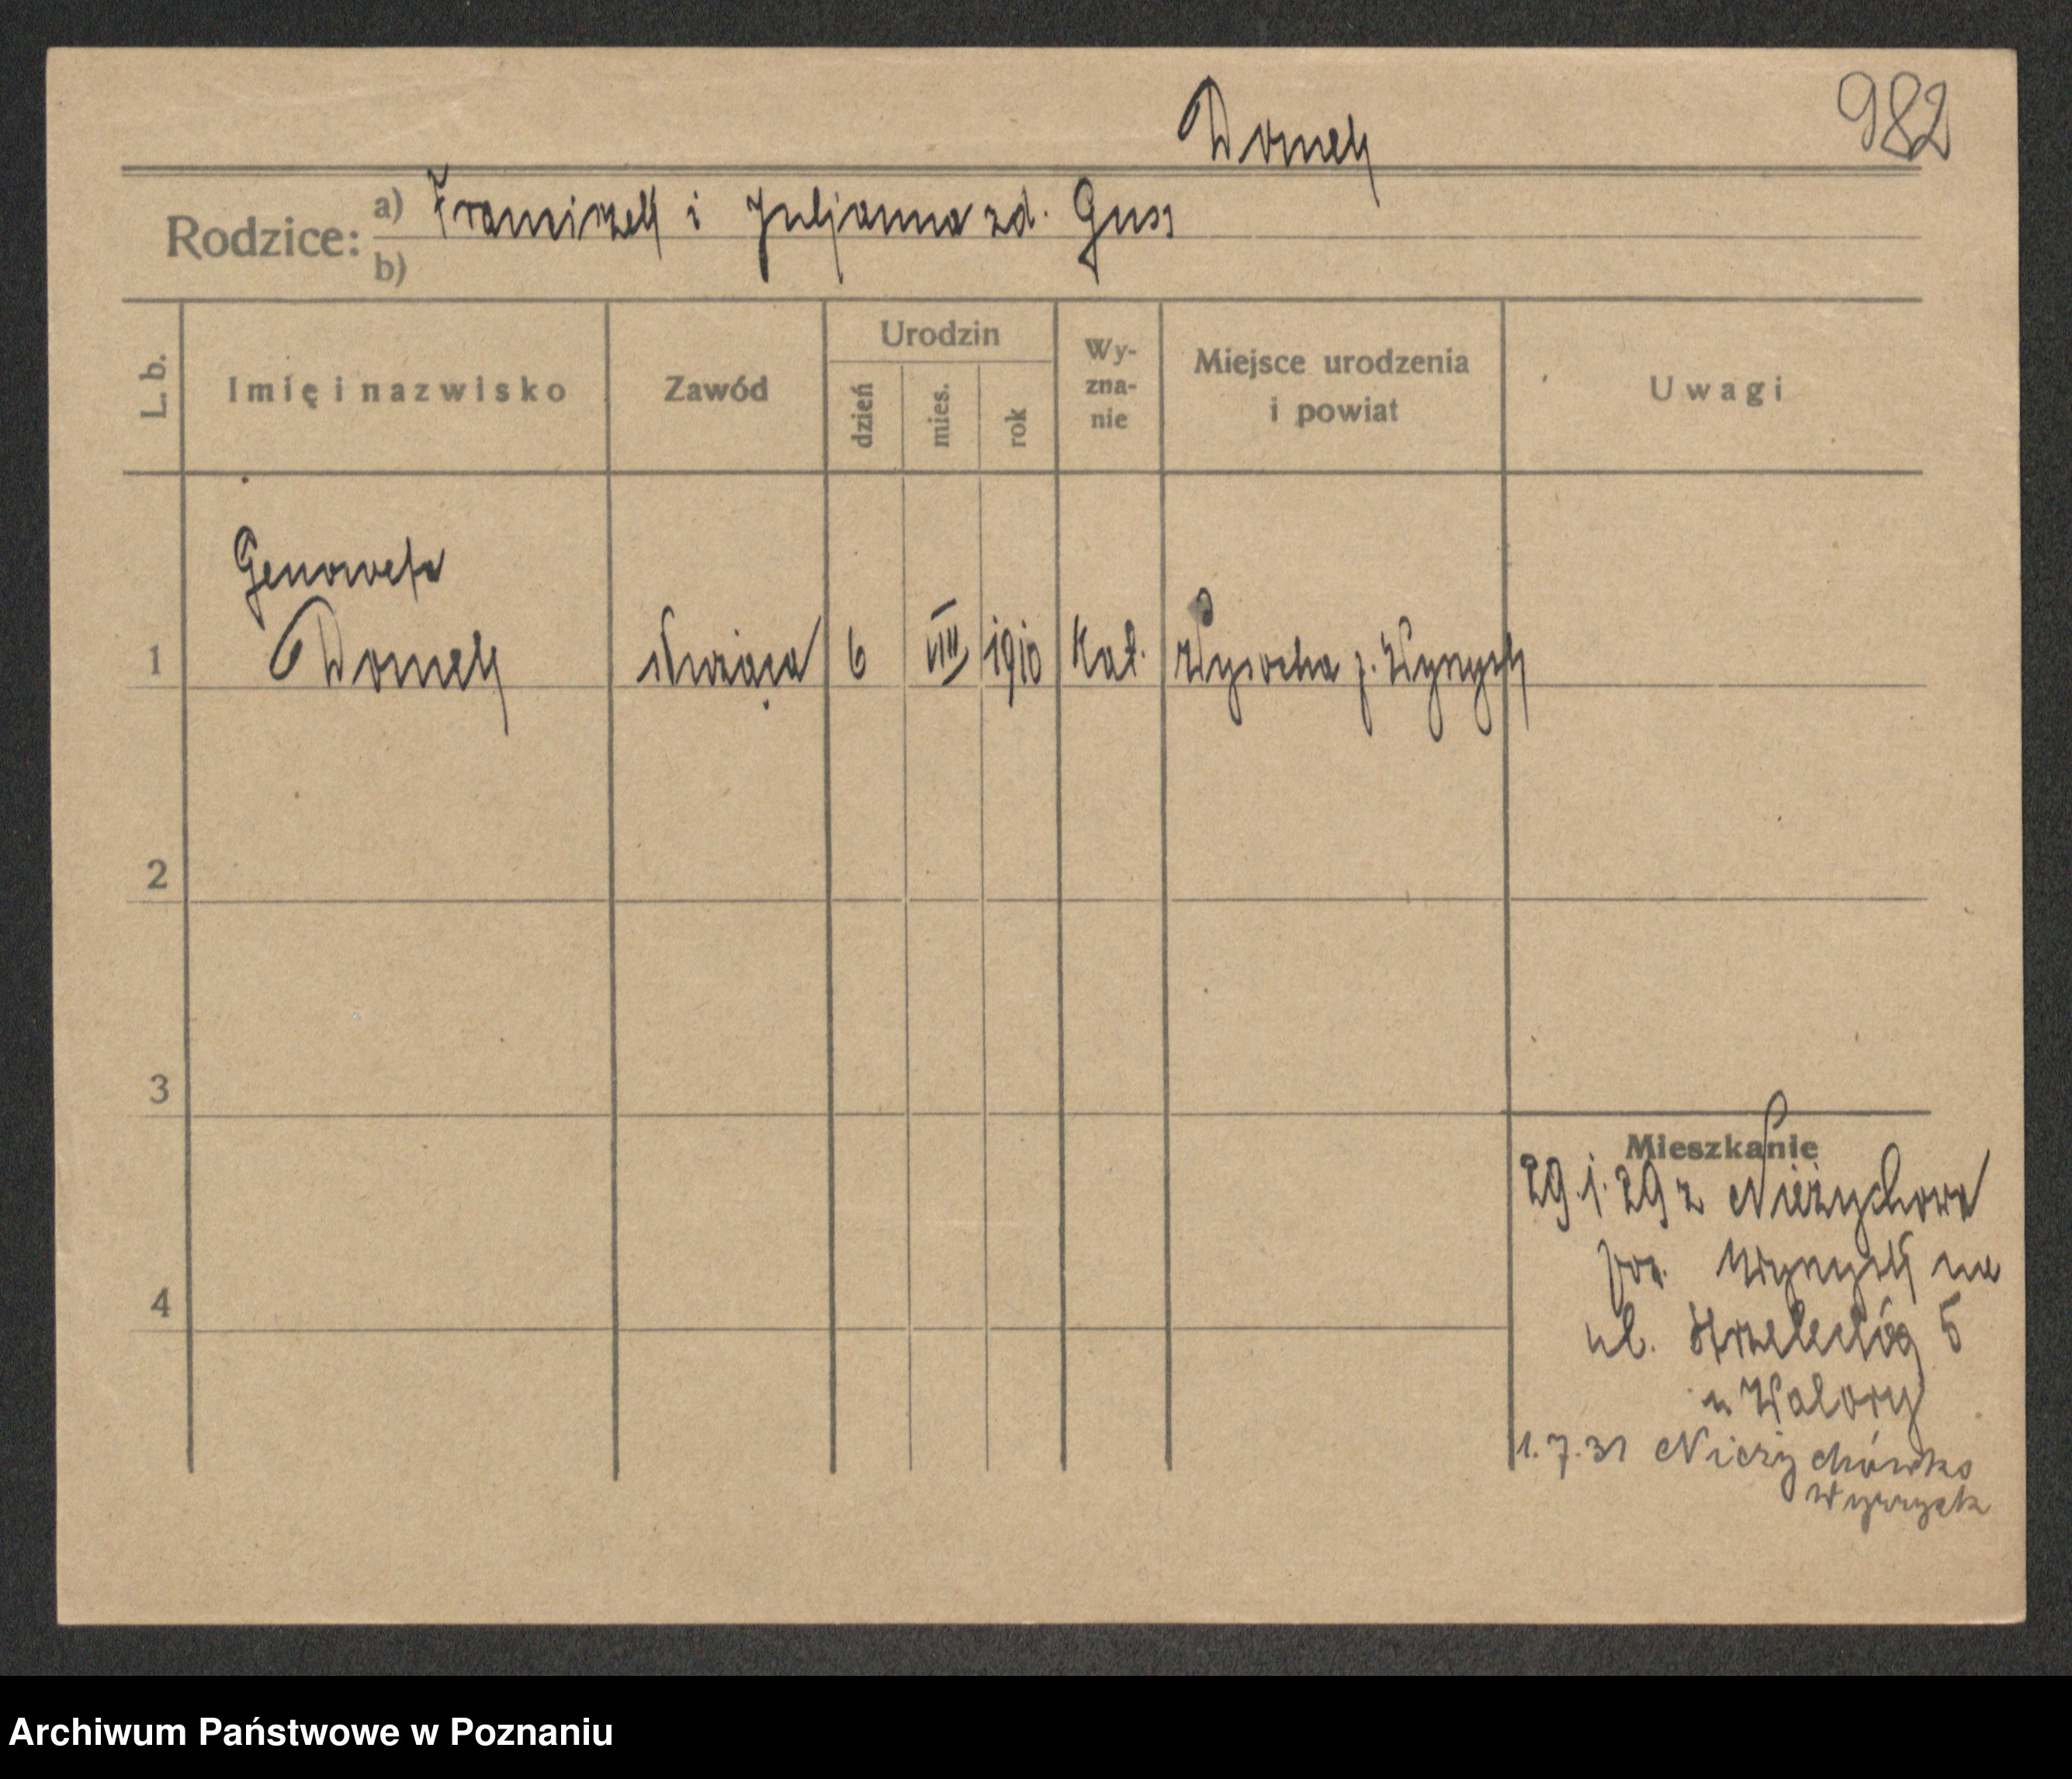 Domek
982
Rodzice: a) Franciszek i Juljanna zd. Guss
b)
L. b.
Imię i nazwisko
Zawód
Urodzin
dzień
mies.
rok
Wy-
zna-
nie
Miejsce urodzenia
i powiat
Uwagi
Genowefa
1 Domek służąca 6 VIII 1910 kat. Wysocka p. Wyrzysk
2
3
4
Mieszkanie
29.1.29 z Nieżychowa
pow. Wyrzysk na
ul. Strzelecką 5
u Walory
1.7.31 Nieżychówko
Wyrzysk
Archiwum Państwowe w Poznaniu